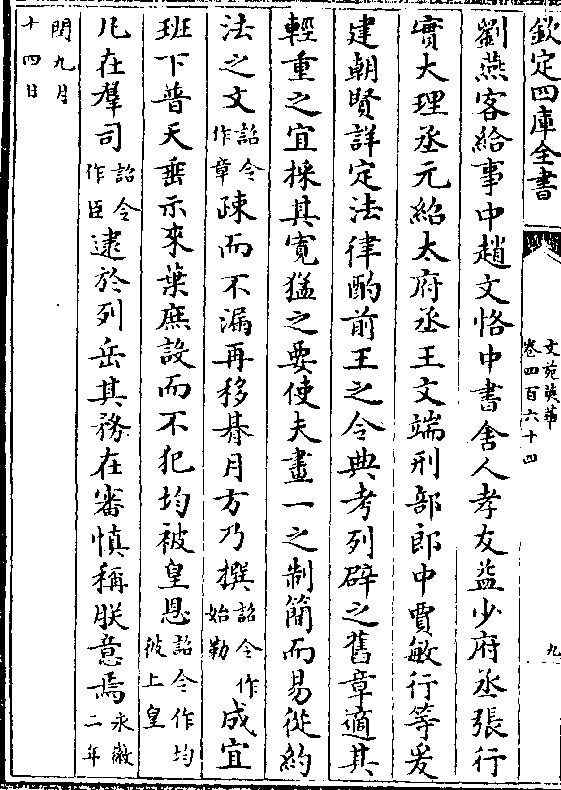 欽定四庫全書
文苑英華
卷四百六十四
九
劉燕客給事中趙文恪中書舍人李友益少府丞張行
實大理丞元紹太府丞王文端刑部郎中賈敏行等爰
建朝賢詳定法律酌前王之令典考列辟之舊章適其
輕重之宜採其寛猛之要使夫畫一之制簡而易從約
法之文詔令作章疎而不漏再移朞月方乃撰詔令作始勒成宜
班下普天垂示來葉庶設而不犯均被皇恩詔令作均彼上皇
凡在羣司詔令作臣逮於列岳其務在審慎稱朕意焉永徽二年
閏九月十四日